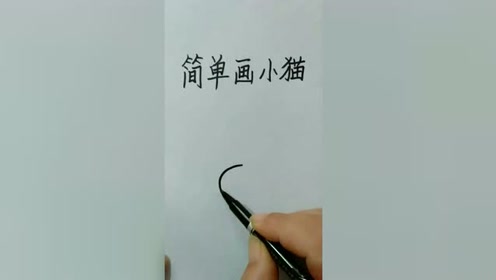 简单画小猫